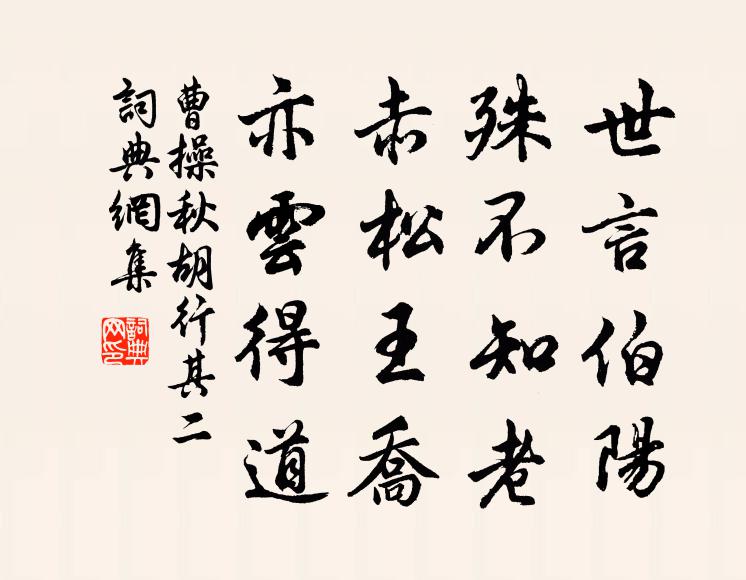 世言伯陽
殊不知老
赤松王喬
亦雲得道
曹操秋胡行其二
詞典網集
詞典網印